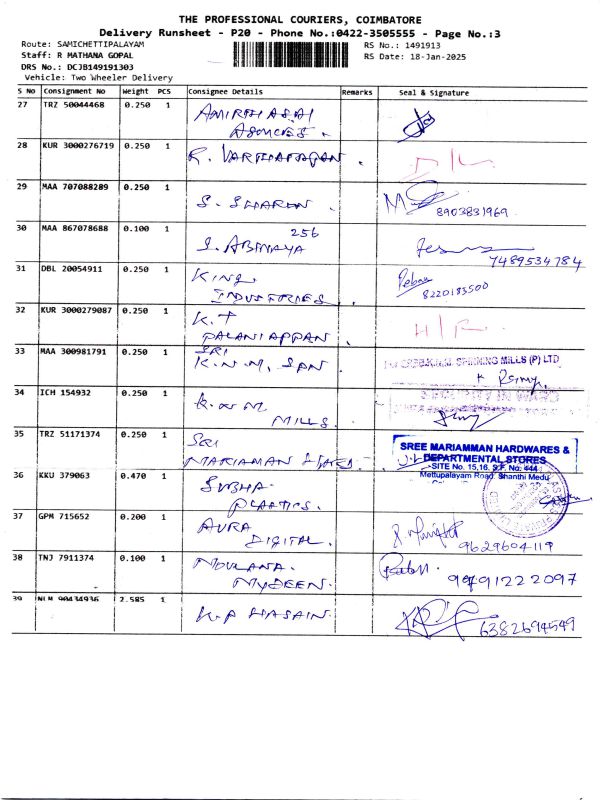 THE PROFESSIONAL COURIERS, COIMBATORE
Delivery Runsheet - P20 - Phone No.:0422-3505555 - Page No.:3
Route: SAMICHETTIPALAYAM RS No.: 1491913
Staff: R MATHANA GOPAL RS Date: 18-Jan-2025
DRS No.: DCJB149191303
Vehicle: Two Wheeler Delivery
S No Consignment No Weight PCS Consignee Details Remarks Seal & Signature
27 TRZ 50044468 0.250 1 AMIRTHASAI
28 KUR 3000276719 0.250 1 R. VARTHARAJAN. D/L
29 MAA 707088289 0.250 1 S. SHAREN.
8903831969.
30 MAA 867078688 0.100 1 256
S. ABINAYA 7489534784
31 DBL 20054911 0.250 1 KING
INDUSTRIES. 8220183500
32 KUR 3000279087 0.250 1 K.T
PALANIAPPAN. H/F
33 MAA 300981791 0.250 1 SRI
K.N.M. SPN SPINNING MILLS (P) LTD
34 ICH 154932 0.250 1
MILLS.
35 TRZ 51171374 0.250 1 SRI
MARIAMAN STORES. SREE MARIAMMAN HARDWARES &
DEPARTMENTAL STORES
SITE No. 15,16, S.F. No. 444
Mettupalayam Road, Shanthi Medu
36 KKU 379063 0.470 1 SUBHA
PLASTICS.
37 GPM 715652 0.200 1 AURA
DIGITAL. 9629604119
38 TNJ 7911374 0.100 1 MOULANA.
MYDEEN. 9791222097
39 NLM 90434936 2.585 1 K.P HASAIN. 6382694549